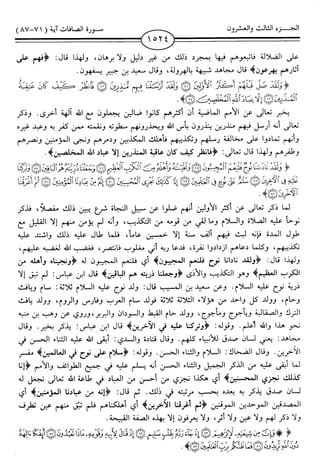 الجـــزء الثالث والعشرون
١٥٢٤
سورة الصافات آية (٧١-٨٧)
على الضلالة فاتبعوهم فيها بمجرد ذلك من غير دليل ولا برهان، ولهذا قال: ﴿فهم على
آثارهم يهرعون﴾ قال مجاهد شبيهة بالهرولة، وقال سعيد بن جبير يسفهون.
﴿وَلَقَدْ ضَلَّ قَبْلَهُمْ أَكْثَرُ الْأَوَّلِينَ ۝ وَلَقَدْ أَرْسَلْنَا فِيهِم مُّنذِرِينَ ۝ فَانظُرْ كَيْفَ كَانَ عَاقِبَةُ
الْمُنذَرِينَ ۝ إِلَّا عِبَادَ اللَّهِ الْمُخْلَصِينَ ۝﴾
يخبر تعالى عن الأمم الماضية أن أكثرهم كانوا ضالين يجعلون مع الله آلهة أخرى. وذكر
تعالى أنه أرسل فيهم منذرين ينذرون بأس الله ويحذرونهم سطوته ونقمته ممن كفر به وعبد غيره
وأنهم تمادوا على مخالفة رسلهم وتكذيبهم فأهلك المكذبين ودمرهم ونجى المؤمنين ونصرهم
وظفرهم ولهذا قال تعالى: ﴿فانظر كيف كان عاقبة المنذرين إلا عباد الله المخلصين﴾.
﴿وَلَقَدْ نَادَانَا نُوحٌ فَلَنِعْمَ الْمُجِيبُونَ ۝ وَنَجَّيْنَاهُ وَأَهْلَهُ مِنَ الْكَرْبِ الْعَظِيمِ ۝ وَجَعَلْنَا ذُرِّيَّتَهُ هُمُ الْبَاقِينَ ۝ وَتَرَكْنَا
عَلَيْهِ فِي الْآخِرِينَ ۝ سَلَامٌ عَلَى نُوحٍ فِي الْعَالَمِينَ ۝ إِنَّا كَذَلِكَ نَجْزِي الْمُحْسِنِينَ ۝ إِنَّهُ مِنْ عِبَادِنَا الْمُؤْمِنِينَ ۝ ثُمَّ أَغْرَقْنَا
الْآخَرِينَ ۝﴾
لما ذكر تعالى عن أكثر الأولين أنهم ضلوا عن سبيل النجاة شرع يبين ذلك مفصلاً، فذكر
نوحاً عليه الصلاة والسلام وما لقي من قومه من التكذيب، وأنه لم يؤمن منهم إلا القليل مع
طول المدة فإنه لبث فيهم ألف سنة إلا خمسين عاماً، فلما طال عليه ذلك واشتد عليه
تكذيبهم، وكلما دعاهم ازدادوا نفرة، فدعا ربه أني مغلوب فانتصر، فغضب الله لغضبه عليهم،
ولهذا قال: ﴿ولقد نادانا نوح فلنعم المجيبون﴾ أي فلنعم المجيبون له ﴿ونجيناه وأهله من
الكرب العظيم﴾ وهو التكذيب والأذى ﴿وجعلنا ذريته هم الباقين﴾ قال ابن عباس: لم تبق إلا
ذرية نوح عليه السلام. وعن سعيد بن المسيب قال: ولد نوح عليه السلام ثلاثة: سام ويافث
وحام، وولد كل واحد من هؤلاء الثلاثة ثلاثة فولد سام العرب وفارس والروم، وولد يافث
الترك والصقالبة ويأجوج ومأجوج، وولد حام القبط والسودان والبربر،وروي عن وهب بن منبه
نحو هذا والله أعلم. وقوله: ﴿وتركنا عليه في الآخرين﴾ قال ابن عباس: يذكر بخير. وقال
مجاهد: يعني لسان صدق للأنبياء كلهم. وقال قتادة والسدي: أبقى الله عليه الثناء الحسن في
الآخرين. وقال الضحاك: السلام والثناء الحسن. وقوله: ﴿سلام على نوح في العالمين﴾ مفسر
لما أبقى عليه من الذكر الجميل والثناء الحسن أنه يسلم عليه في جميع الطوائف والأمم ﴿إنا
كذلك نجزي المحسنين﴾ أي هكذا نجزي من أحسن من العباد في طاعة الله تعالى نجعل له
لسان صدق يذكر به بعده بحسب مرتبته في ذلك. ثم قال: ﴿إنه من عبادنا المؤمنين﴾ أي
المصدقين الموحدين الموقنين ﴿ثم أغرقنا الآخرين﴾ أي أهلكناهم فلم تبق منهم عين تطرف
ولا ذكر لهم ولا عين ولا أثر، ولا يعرفون إلا بهذه الصفة القبيحة.
﴿وَإِنَّ مِن شِيعَتِهِ لَإِبْرَاهِيمَ ۝ إِذْ جَاءَ رَبَّهُ بِقَلْبٍ سَلِيمٍ ۝ إِذْ قَالَ لِأَبِيهِ وَقَوْمِهِ مَاذَا تَعْبُدُونَ ۝ أَئِفْكًا آلِهَةً
دُونَ اللَّهِ تُرِيدُونَ ۝ فَمَا ظَنُّكُم بِرَبِّ الْعَالَمِينَ ۝﴾